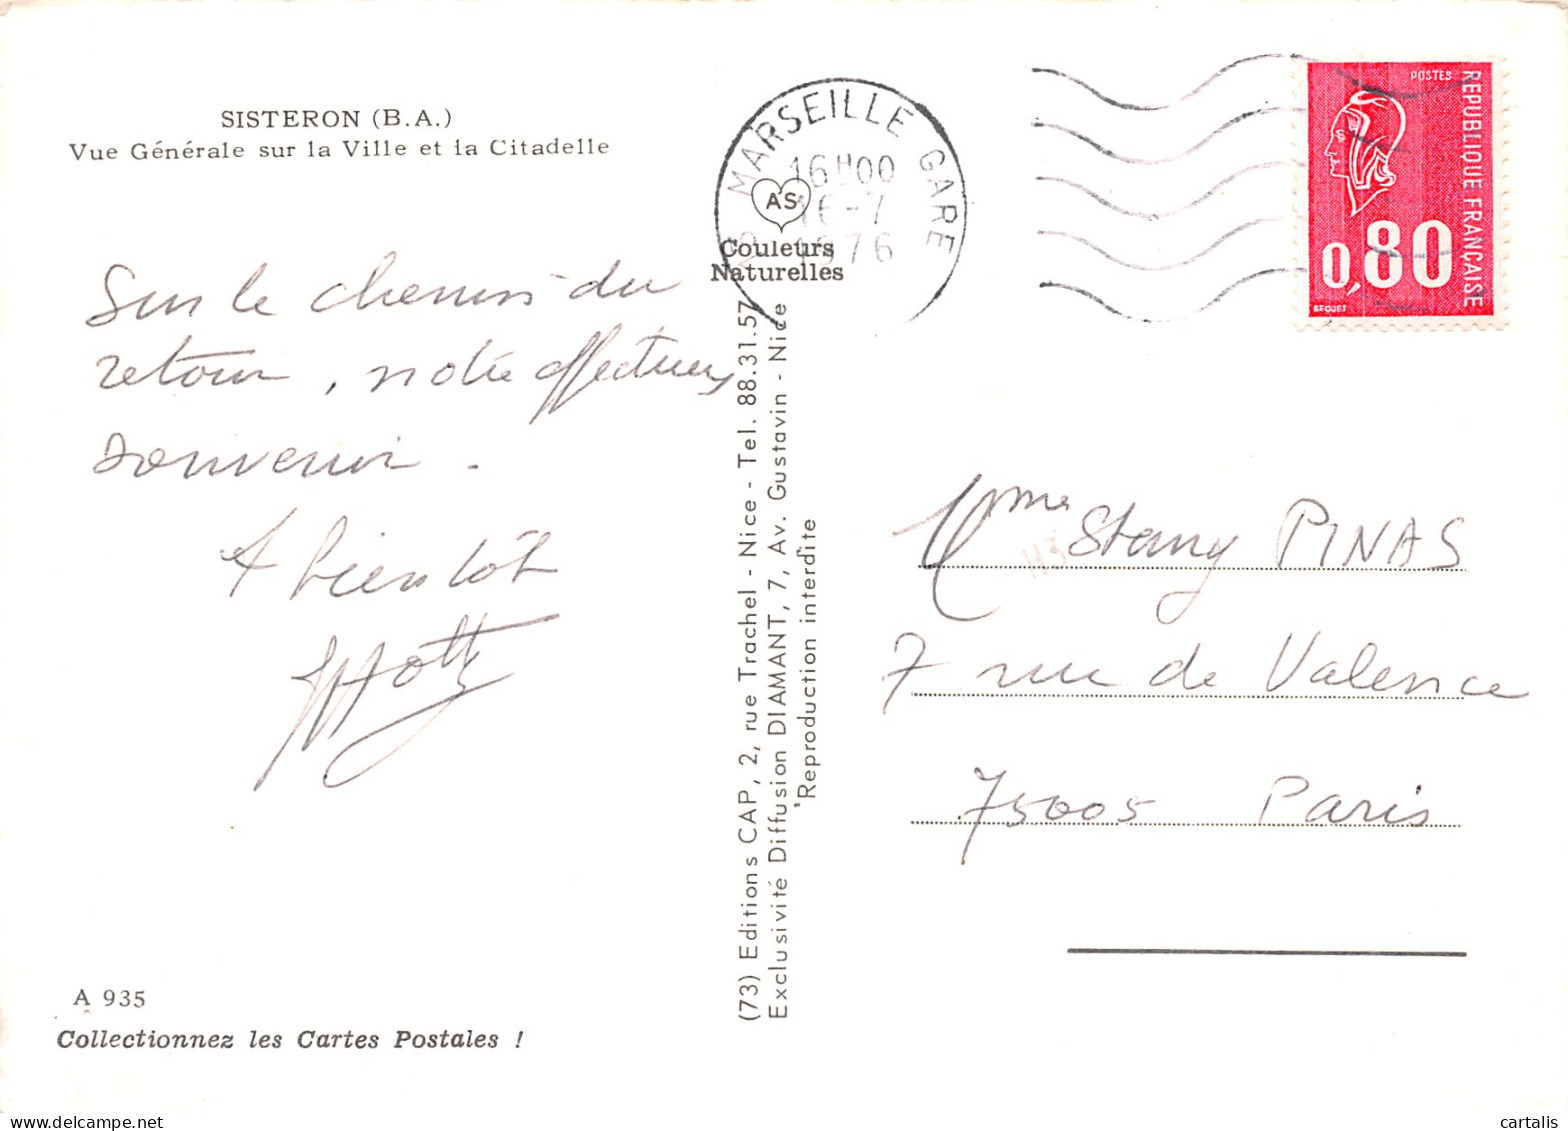 SISTERON (B.A.)
Vue Générale sur la Ville et la Citadelle
Sur le chemin du
retour, notre affectueux
souvenir.
A bientôt
A 935
Collectionnez les Cartes Postales !
MARSEILLE GARE
16H00
16-7
1976
AS
Couleurs
Naturelles
(73) Editions CAP, 2, rue Trachel - Nice - Tel. 88.31.57
Exclusivité Diffusion DIAMANT, 7, Av. Gustavin - Nice
Reproduction interdite
POSTES
REPUBLIQUE FRANÇAISE
0,80
BEQUET
Mme Stany PINAS
H3
7 rue de Valence
75005 Paris
cartalis
delcampe.net